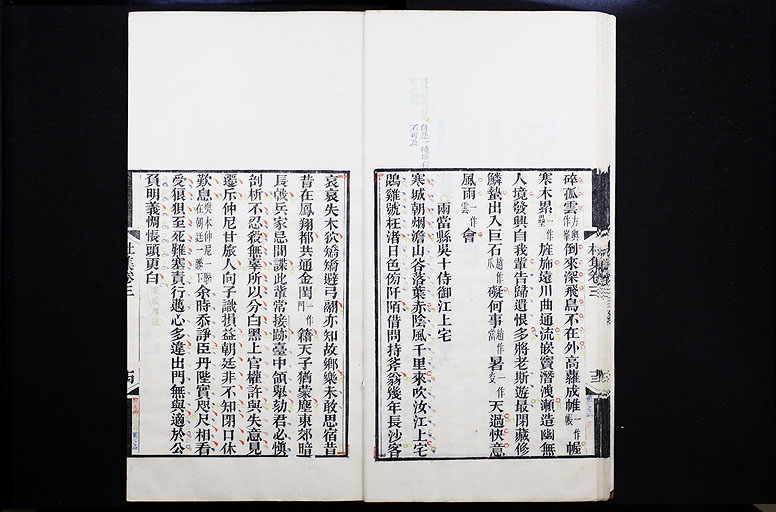 碎孤雲倒來深飛鳥不在外高蘿成帷一作幄
寒木累一作壘旌斾遠川曲通流嵌竇潛洩瀨造幽無
人境發興自我輩告歸遺恨多將老斯遊最閉藏修
鱗蟄出入巨石礙何事暑天過快意
風雨一作雲會
兩當縣吳十侍御江上宅
寒城朝烟澹山谷落葉赤陰風千里來吹汝江上宅
鵾雞號枉渚日色傍阡陌借問持斧翁幾年長沙客
哀哀失木狖矯矯避弓翮亦知故鄉樂未敢思宿昔
昔在鳳翔都共通金閨一作門籍天子猶蒙塵東郊暗
長戟兵家忌間諜此輩常接跡臺中領舉劾君必慎
剖析不忍殺無辜所以分白黑上官權許與失意見
遷斥仲尼甘旅人向子識損益朝廷非不知閉口休
歎息余時忝諍臣丹陛實咫尺相看
受狼狽至死難塞責行邁心多違出門無與適於公
負明義惆悵頭更白
杜集卷三
杜集卷三